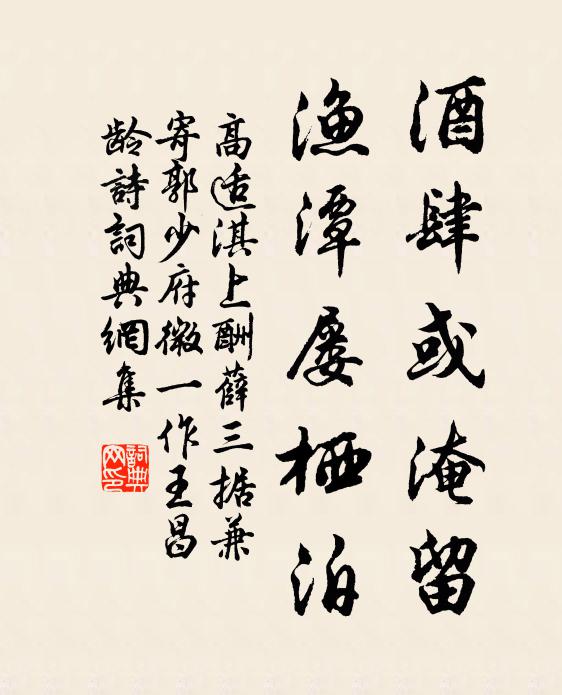 酒肆或淹留
漁潭屡栖泊
高适淇上酬薛三据兼
寄郭少府微一作王昌
龄詩詞典網集
詞典
网印